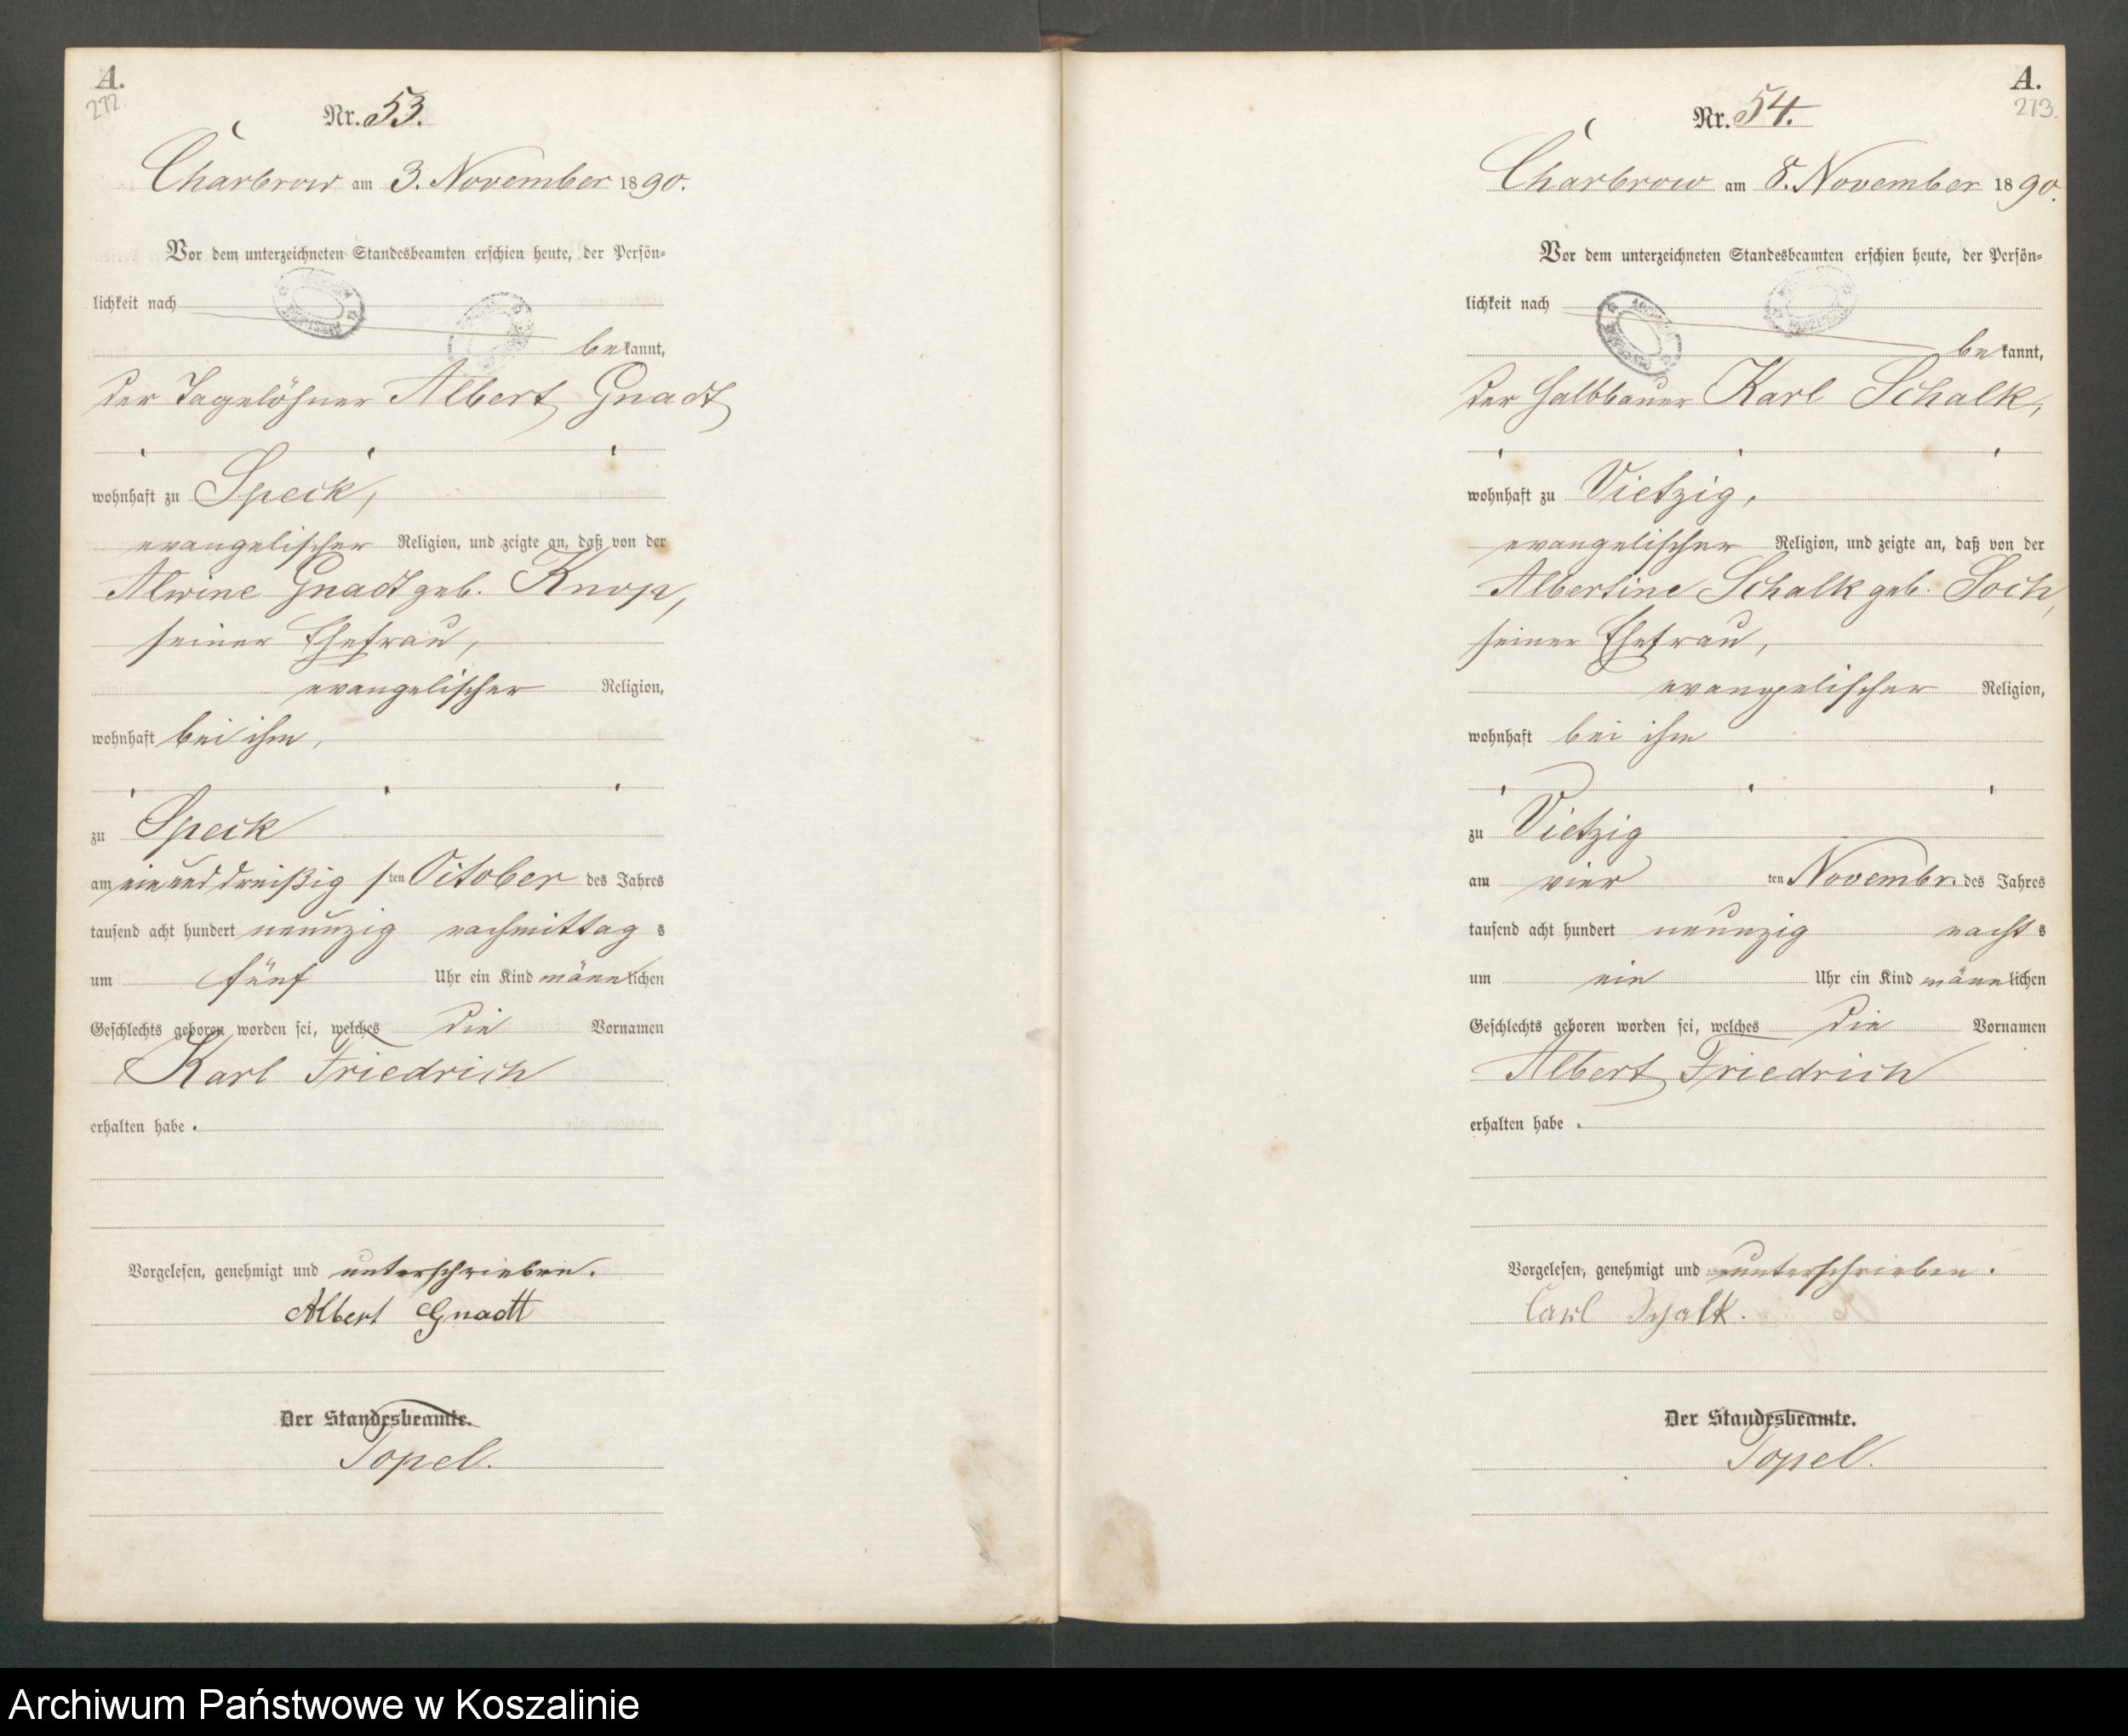 A.
272.
Nr. 53.
Charbrow am 3. November 1890.
Vor dem unterzeichneten Standesbeamten erschien heute, der Persön-
lichkeit nach
bekannt,
der Tagelöhner Albert Gnadt
wohnhaft zu Speck,
evangelischer Religion, und zeigte an, daß von der
Alwine Gnadt geb. Knop,
seiner Ehefrau,
evangelischer Religion,
wohnhaft bei ihm,
zu Speck
am einunddreißig sten October des Jahres
tausend acht hundert neunzig nachmittags
um fünf Uhr ein Kind männlichen
Geschlechts geboren worden sei, welches die Vornamen
Karl Friedrich
erhalten habe.
Vorgelesen, genehmigt und unterschrieben.
Albert Gnadt
Der Standesbeamte.
Topel.
A.
273.
Nr. 54.
Charbrow am 8. November 1890.
Vor dem unterzeichneten Standesbeamten erschien heute, der Persön-
lichkeit nach
bekannt,
der Halbbauer Karl Schalk,
wohnhaft zu Vietzig,
evangelischer Religion, und zeigte an, daß von der
Albertine Schalk geb. Soch,
seiner Ehefrau,
evangelischer Religion,
wohnhaft bei ihm
zu Vietzig
am vier ten Novembr. des Jahres
tausend acht hundert neunzig nachts
um ein Uhr ein Kind männlichen
Geschlechts geboren worden sei, welches die Vornamen
Albert Friedrich
erhalten habe.
Vorgelesen, genehmigt und unterschrieben.
Carl Schalk.
Der Standesbeamte.
Topel.
Archiwum Państwowe w Koszalinie